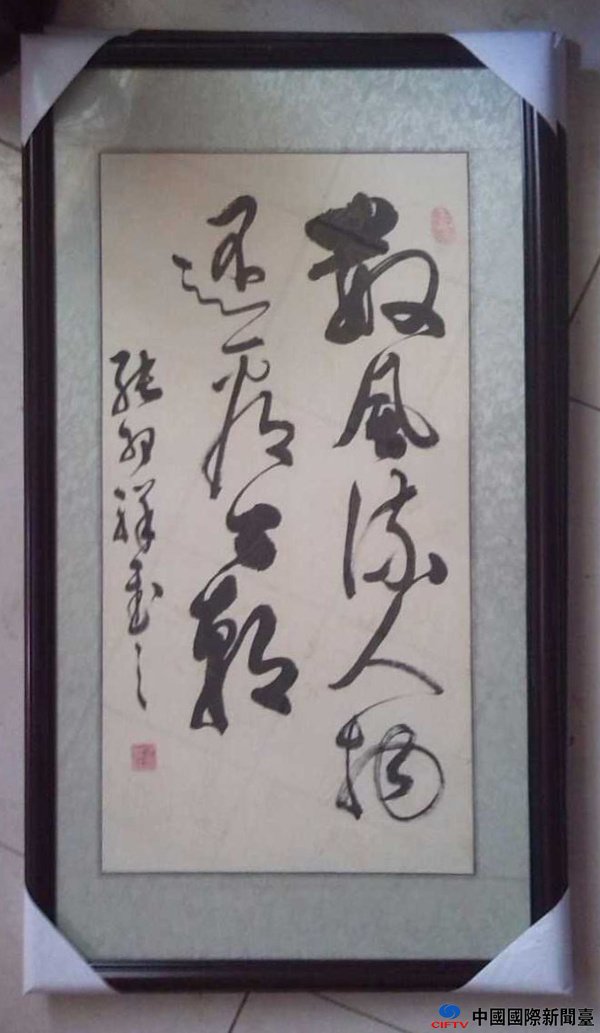 數風流人物
還看今朝
張
祥書之
中國國際新聞臺
CIFTV